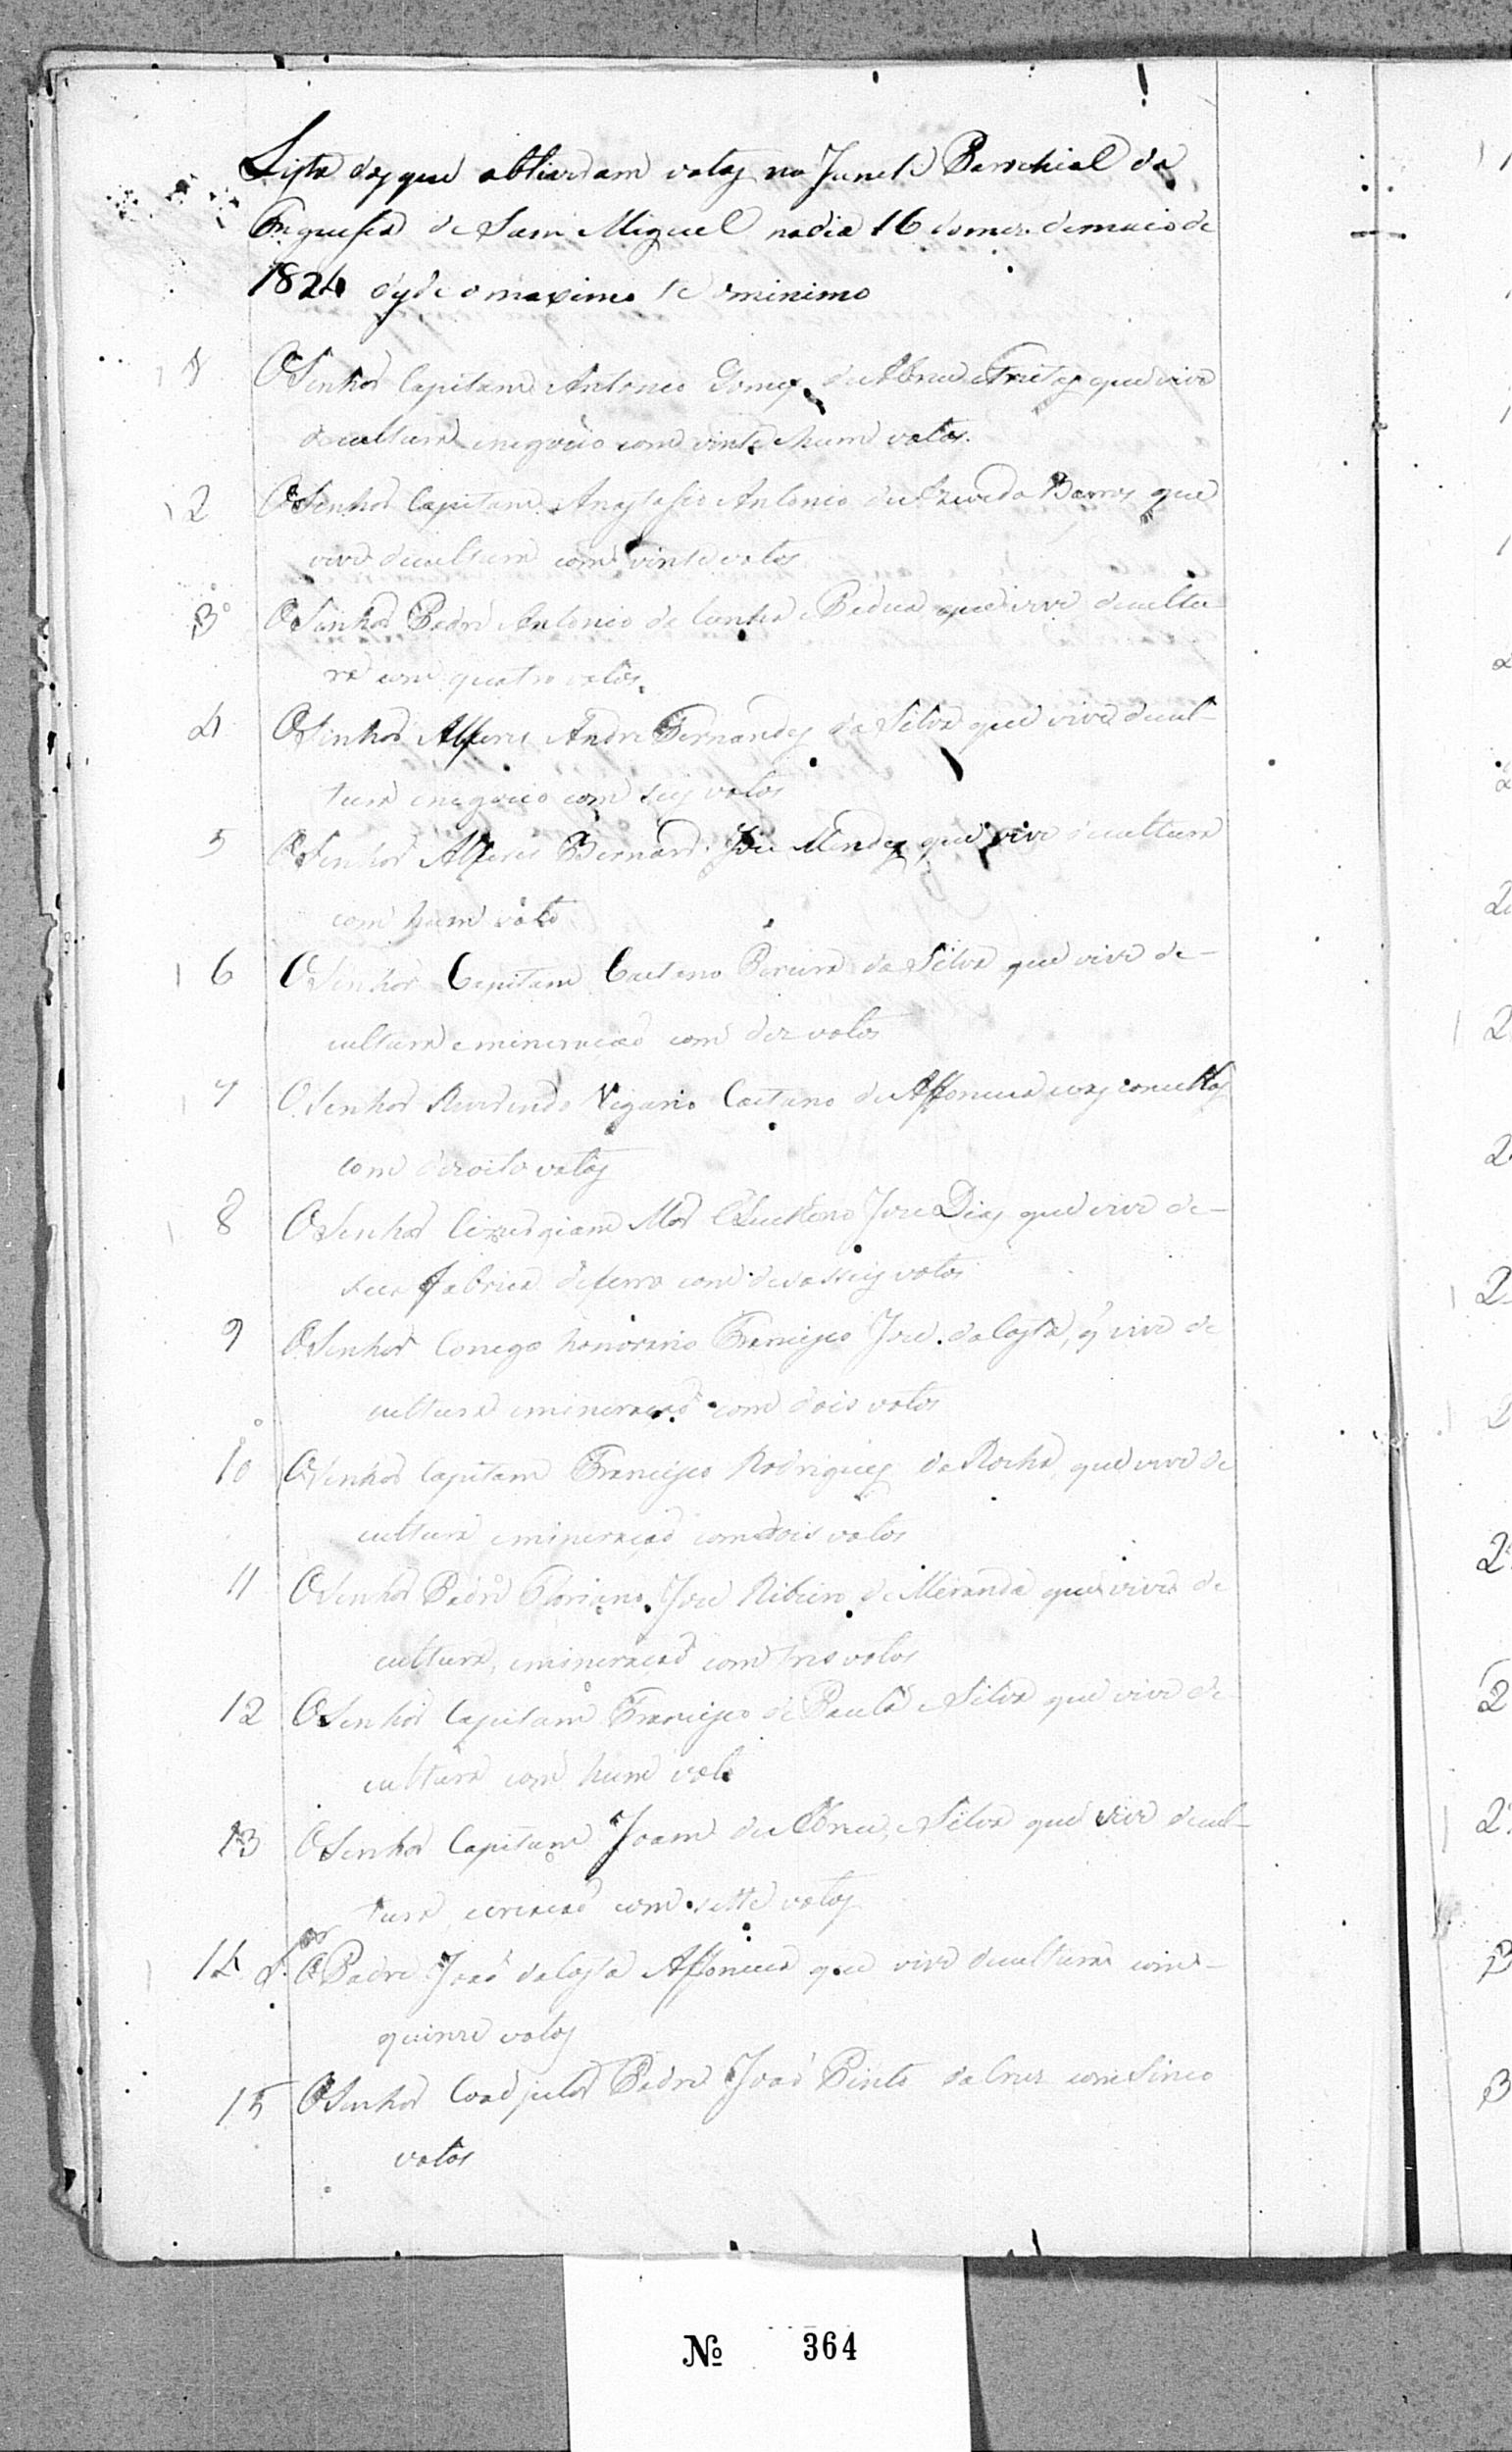 Lista dos que obtiveram votos na Junta Parrchial da
Freguesia de Sam Miguel no dia 16 do mez de maio de
1824 desde o maximo te o minimo
1 O Senhor Capitam Antonio Gomes de Abreu e Freitas que vive
de cultura e negocio com vinte e hum votos.
2 O Senhor Capitam Anastasio Antonio de Azevedo Barros que
vive de cultura com vinte votos
3 O Senhor Padre Antonio da Cunha que vive de cultu-
ra com quatro votos.
4 O Senhor Alferes Andre Fernandes da Silva que vive de cul-
tura e negocio com seis votos
5 O Senhor Alferes Bernardo Joze Mendes que vive de cultura
com hum voto
6 O Senhor Capitam Caetano Pereira da Silva que vive de-
cultura e mineração com dez votos
7 O Senhor Reverendo Vigario Caetano da Affonceca
com dezoito votos
8 O Senhor Cirurgiam Mor Joze Dias que vive de-
sua fabrica de ferro com desasseis votos
9 O Senhor Conego honorario Francisco Joze da Costa, q' vive de
cultura e mineração com dois votos
10 O Senhor Capitam Francisco Rodrigues da Rocha que vive de
cultura e mineração com dois votos
11 O Senhor Padre Floriano Joze Ribeiro de Miranda que vive de
cultura, e mineração com tres votos
12 O Senhor Capitam Francisco de Paula e Silva que vive de
cultura com hum voto
13 O Senhor Capitam Joam de Abreu, e Silva que vive de cul-
tura e criação com sette votos
14 O Sor Padre João da Costa Affonceca que vive de cultura com-
quinze votos
15 O Senhor Coadjutor Padre João Pinto da Cruz com sinco
votos
№ 364